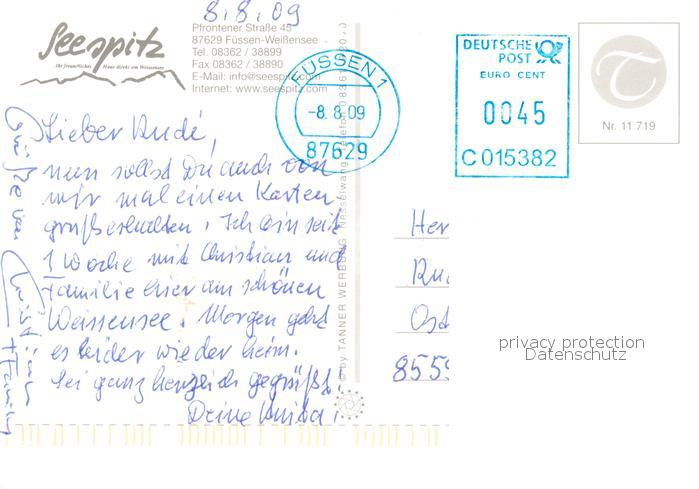 8.8.09
Seespitz
Ihr freundliches Haus direkt am Weissensee
Pfrontener Straße 45
87629 Füssen-Weißensee
Tel. 08362 / 38899
Fax 08362 / 38890
E-Mail: info@seespitz.com
Internet: www.seespitz.com
FÜSSEN 1
-8.8.09
87629
DEUTSCHE
POST
EURO CENT
0045
C015382
Nr. 11 719
Lieber Rudi,
nun sollst Du auch von
mir mal einen Karten,
gruß erhalten. Ich bin seit
1 Woche mit Christian und
Familie hier am schönen
Weissensee. Morgen geht
es leider wieder heim.
Sei ganz herzlich gegrüßt!
Deine
Grüße von Christian + Family
© by TANNER WERBUNG Nesselwang Telefon 0 83 61
Her
Ru
Ost
8559
privacy protection
Datenschutz